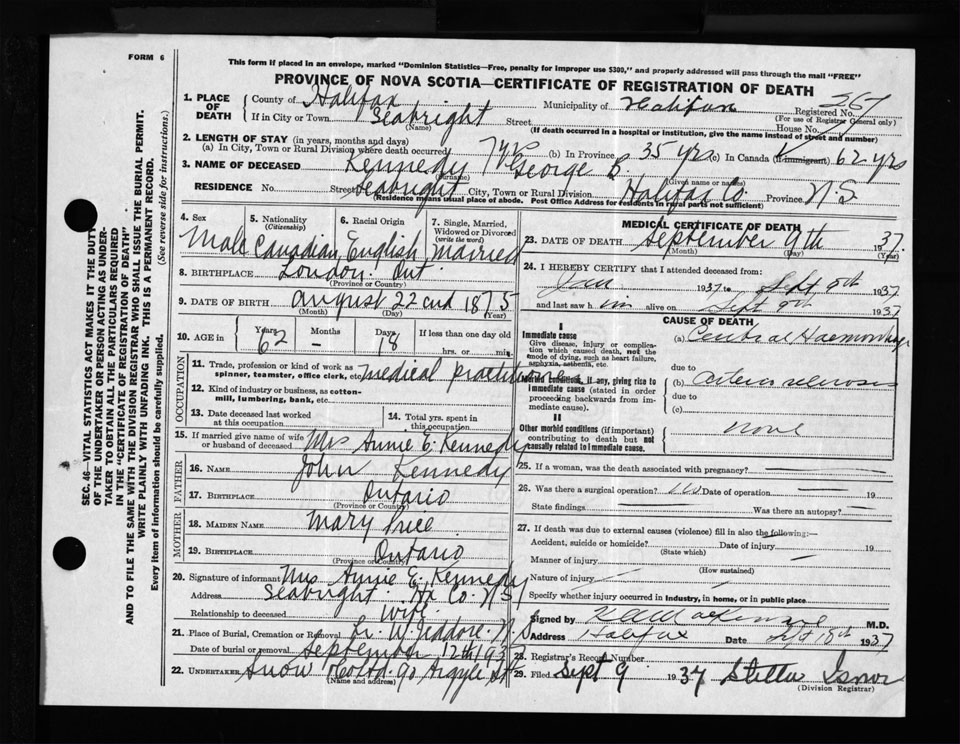 FORM 6
This form if placed in an envelope, marked "Dominion Statistics—Free, penalty for improper use $300," and properly addressed will pass through the mail "FREE"
PROVINCE OF NOVA SCOTIA—CERTIFICATE OF REGISTRATION OF DEATH
1. PLACE OF DEATH County of Halifax Municipality of Halifax Registered No. 267
(For use of Registrar General only)
If in City or Town Seabright Street House No.
(Name) (If death occurred in a hospital or institution, give the name instead of street and number)
2. LENGTH OF STAY (in years, months and days)
(a) In City, Town or Rural Division where death occurred 7 yrs (b) In Province 35 yrs (c) In Canada (if immigrant) 62 yrs
3. NAME OF DECEASED Kennedy George B.
(Surname) (Given name or names)
RESIDENCE No. Street Seabright City, Town or Rural Division Halifax Co. Province N.S.
(Residence means usual place of abode. Post Office Address for residents in rural parts not sufficient)
4. Sex 5. Nationality (Citizenship) 6. Racial Origin 7. Single, Married, Widowed or Divorced (write the word)
Male Canadian English Married
8. BIRTHPLACE London Ont
(Province or Country)
9. DATE OF BIRTH August 22nd 1875
(Month) (Day) (Year)
10. AGE in Years Months Days If less than one day old
62 – 18 hrs. or min.
OCCUPATION
11. Trade, profession or kind of work as spinner, teamster, office clerk, etc. Medical practitioner
12. Kind of industry or business, as cotton-mill, lumbering, bank, etc.
13. Date deceased last worked at this occupation 14. Total yrs. spent in this occupation
15. If married give name of wife or husband of deceased Mrs Annie E. Kennedy
FATHER
16. NAME John Kennedy
17. BIRTHPLACE Ontario
(Province or Country)
MOTHER
18. MAIDEN NAME Mary Price
19. BIRTHPLACE Ontario
(Province or Country)
20. Signature of informant Mrs Annie E. Kennedy
Address Seabright Hx Co. N.S.
Relationship to deceased Wife
21. Place of Burial, Cremation or Removal N.S.
Date of burial or removal September 12th 1937
22. UNDERTAKER Snow Co Ltd. 90 Argyle St
(Name and address)
MEDICAL CERTIFICATE OF DEATH
23. DATE OF DEATH September 9th 1937
(Month) (Day) (Year)
24. I HEREBY CERTIFY that I attended deceased from:
Jan 1937 to Sept 9th 1937
and last saw him alive on Sept 9th 1937
CAUSE OF DEATH
I
Immediate cause
Give disease, injury or complication which caused death, not the mode of dying, such as heart failure, asphyxia, asthenia, etc.
(a) Cerebral Haemorrhage
due to
Morbid conditions, if any, giving rise to immediate cause (stated in order proceeding backwards from immediate cause).
(b) arteriosclerosis
due to
(c)
II
Other morbid conditions (if important) contributing to death but not causally related to immediate cause.
none
25. If a woman, was the death associated with pregnancy?
26. Was there a surgical operation? no Date of operation 19
State findings Was there an autopsy?
27. If death was due to external causes (violence) fill in also the following:—
Accident, suicide or homicide? Date of injury 19
(State which)
Manner of injury
(How sustained)
Nature of injury
Specify whether injury occurred in industry, in home, or in public place
Signed by M.D.
Address Halifax Date Sept 1937
28. Registrar's Record Number
29. Filed Sept 9 1937 Stella Isnor
(Division Registrar)
SEC. 46—VITAL STATISTICS ACT MAKES IT THE DUTY
OF THE UNDERTAKER OR PERSON ACTING AS UNDER-
TAKER TO OBTAIN ALL THE PARTICULARS REQUIRED
IN THE "CERTIFICATE OF REGISTRATION OF DEATH"
AND TO FILE THE SAME WITH THE DIVISION REGISTRAR WHO SHALL ISSUE THE BURIAL PERMIT.
WRITE PLAINLY WITH UNFADING INK. THIS IS A PERMANENT RECORD.
Every item of information should be carefully supplied.
(See reverse side for instructions.)